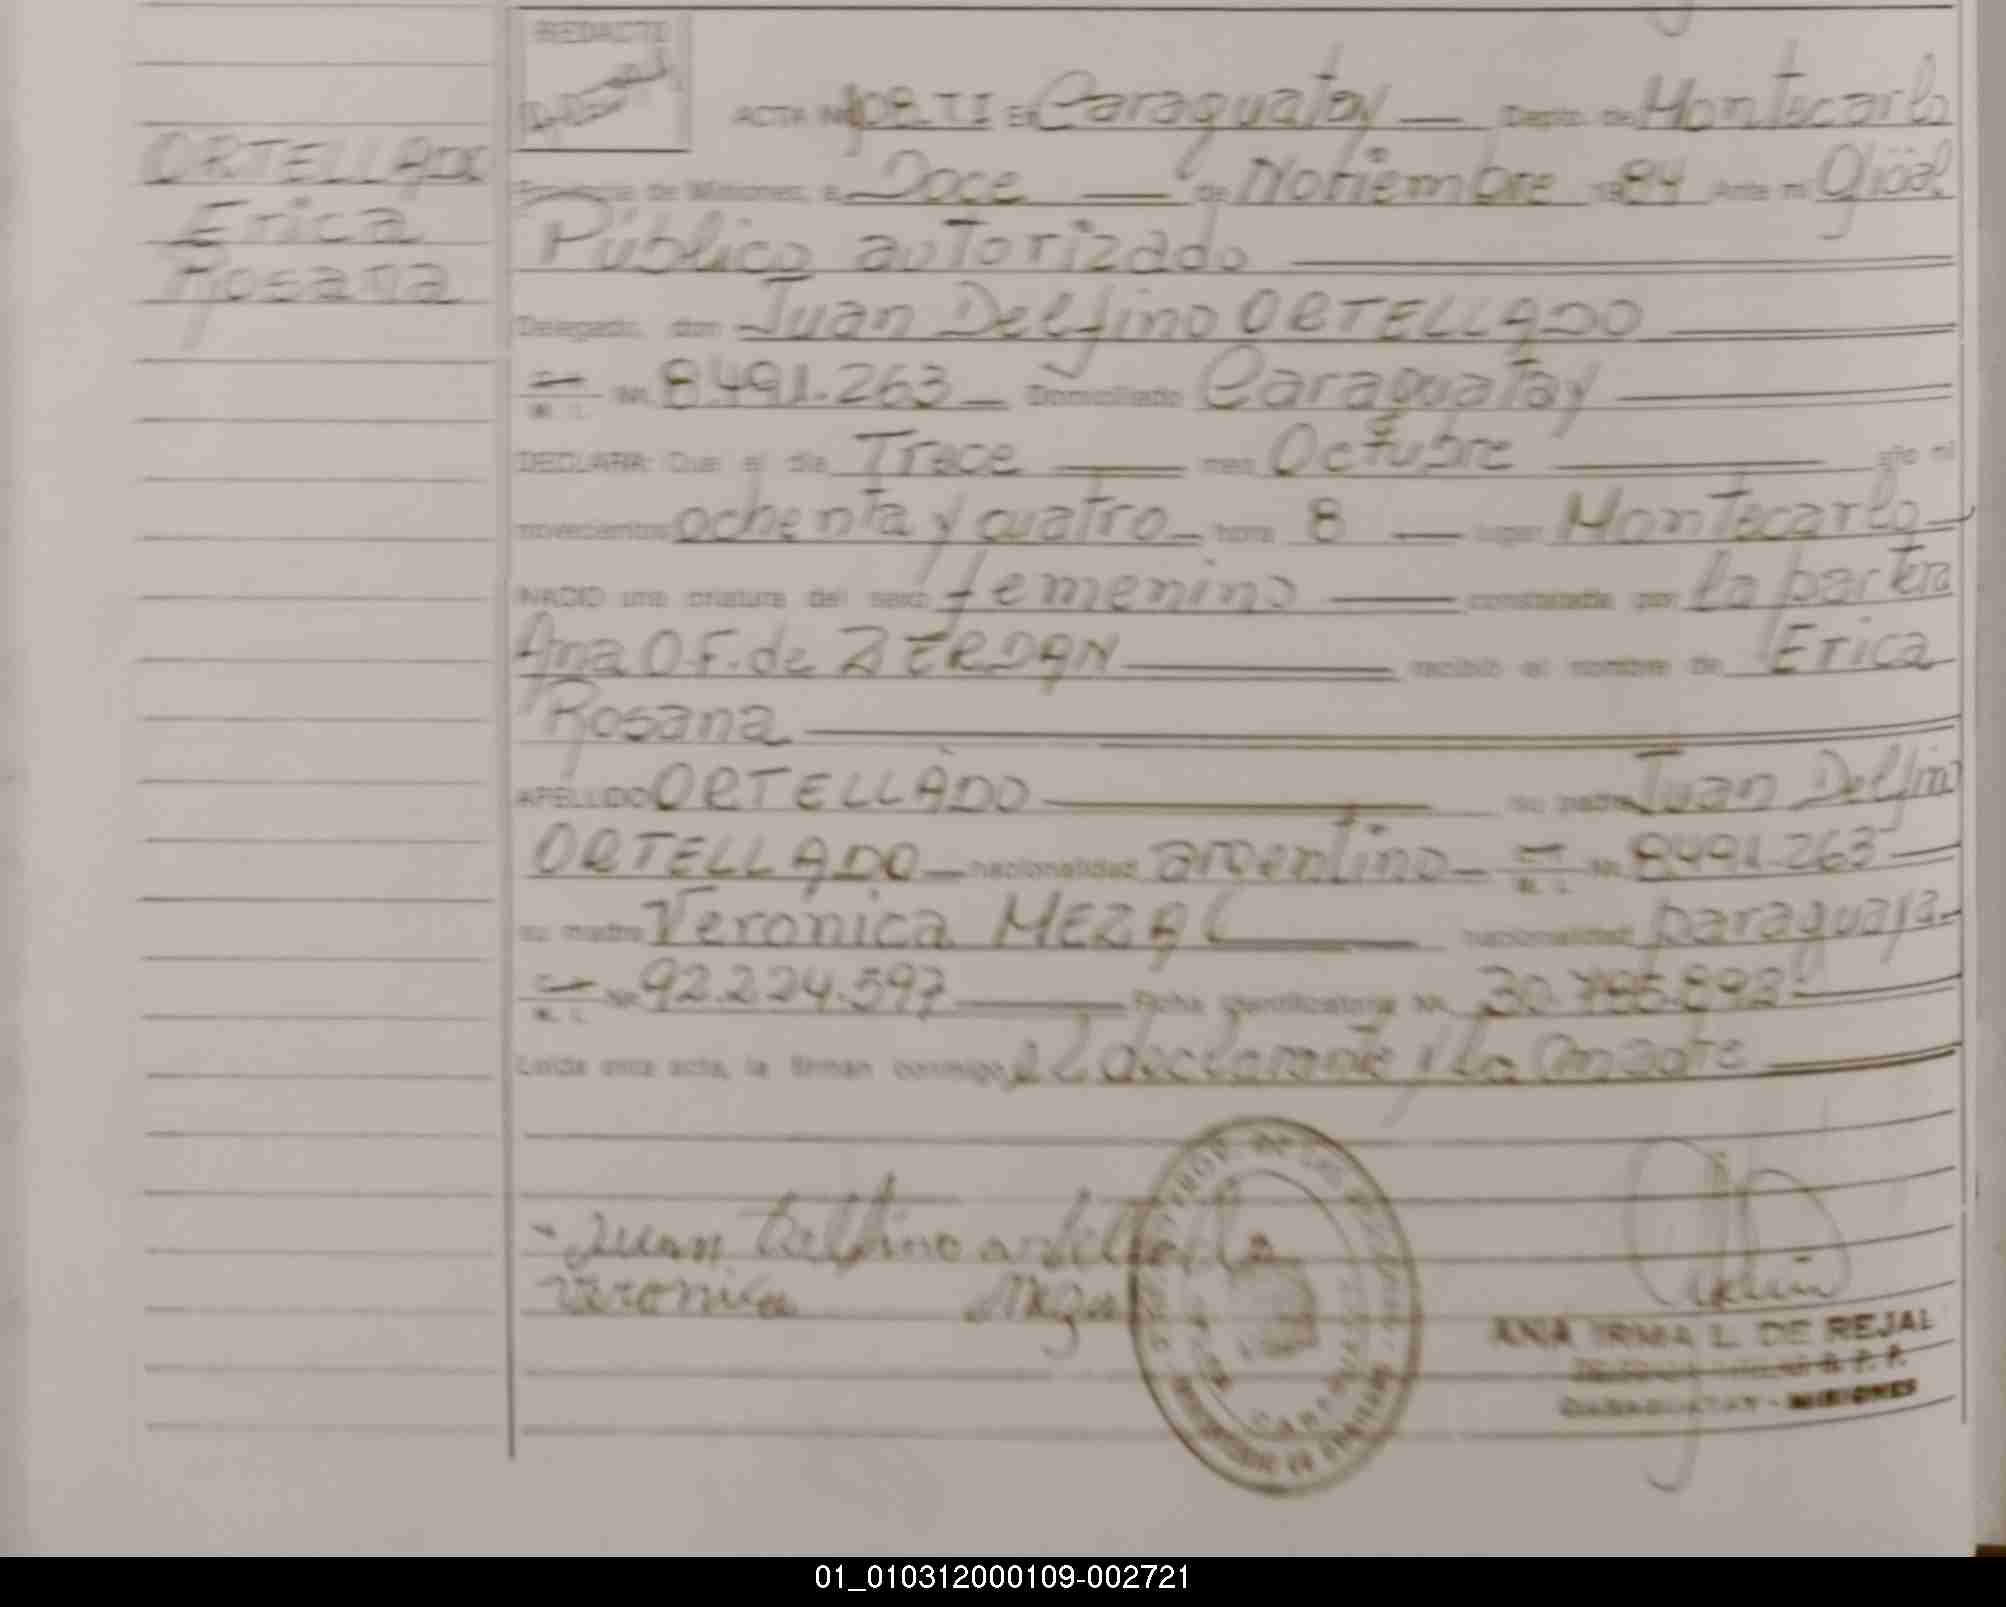 REDACTE
ORTELLADO
Erica
Rosana
ACTA Nº 108. TI En Caraguatay — Depto. de Montecarlo
Provincia de Misiones, a Doce — de Nobiembre 1984 Ante mi Ofisial
Público autorizado
Delegado, don Juan Delfino ORTELLADO
M. I. Nº. 8.491.263 — Domiciliado Caraguatay
DECLARA: Que el día Trece — mes Octubre — año mil
novecientos ochenta y cuatro — hora 8 — lugar Montecarlo
NACIO una criatura del sexo femenino — constatada por la partera
Ana O.F. de ZERDAN — recibió el nombre de Erica
Rosana
APELLIDO ORTELLADO — su padre Juan Delfino
ORTELLADO — nacionalidad argentino — M. I. Nº. 8.491.263 —
su madre Veronica MEZAL — nacionalidad paraguaya
M. I. Nº. 92.224.597 — Ficha identificatoria Nº. 30.785.892
Leída esta acta, la firman conmigo el declarante y la madre
Juan Delfino
Veronica
ANA IRMA L. DE REJAL
CARAGUATAY - MISIONES
01_010312000109-002721